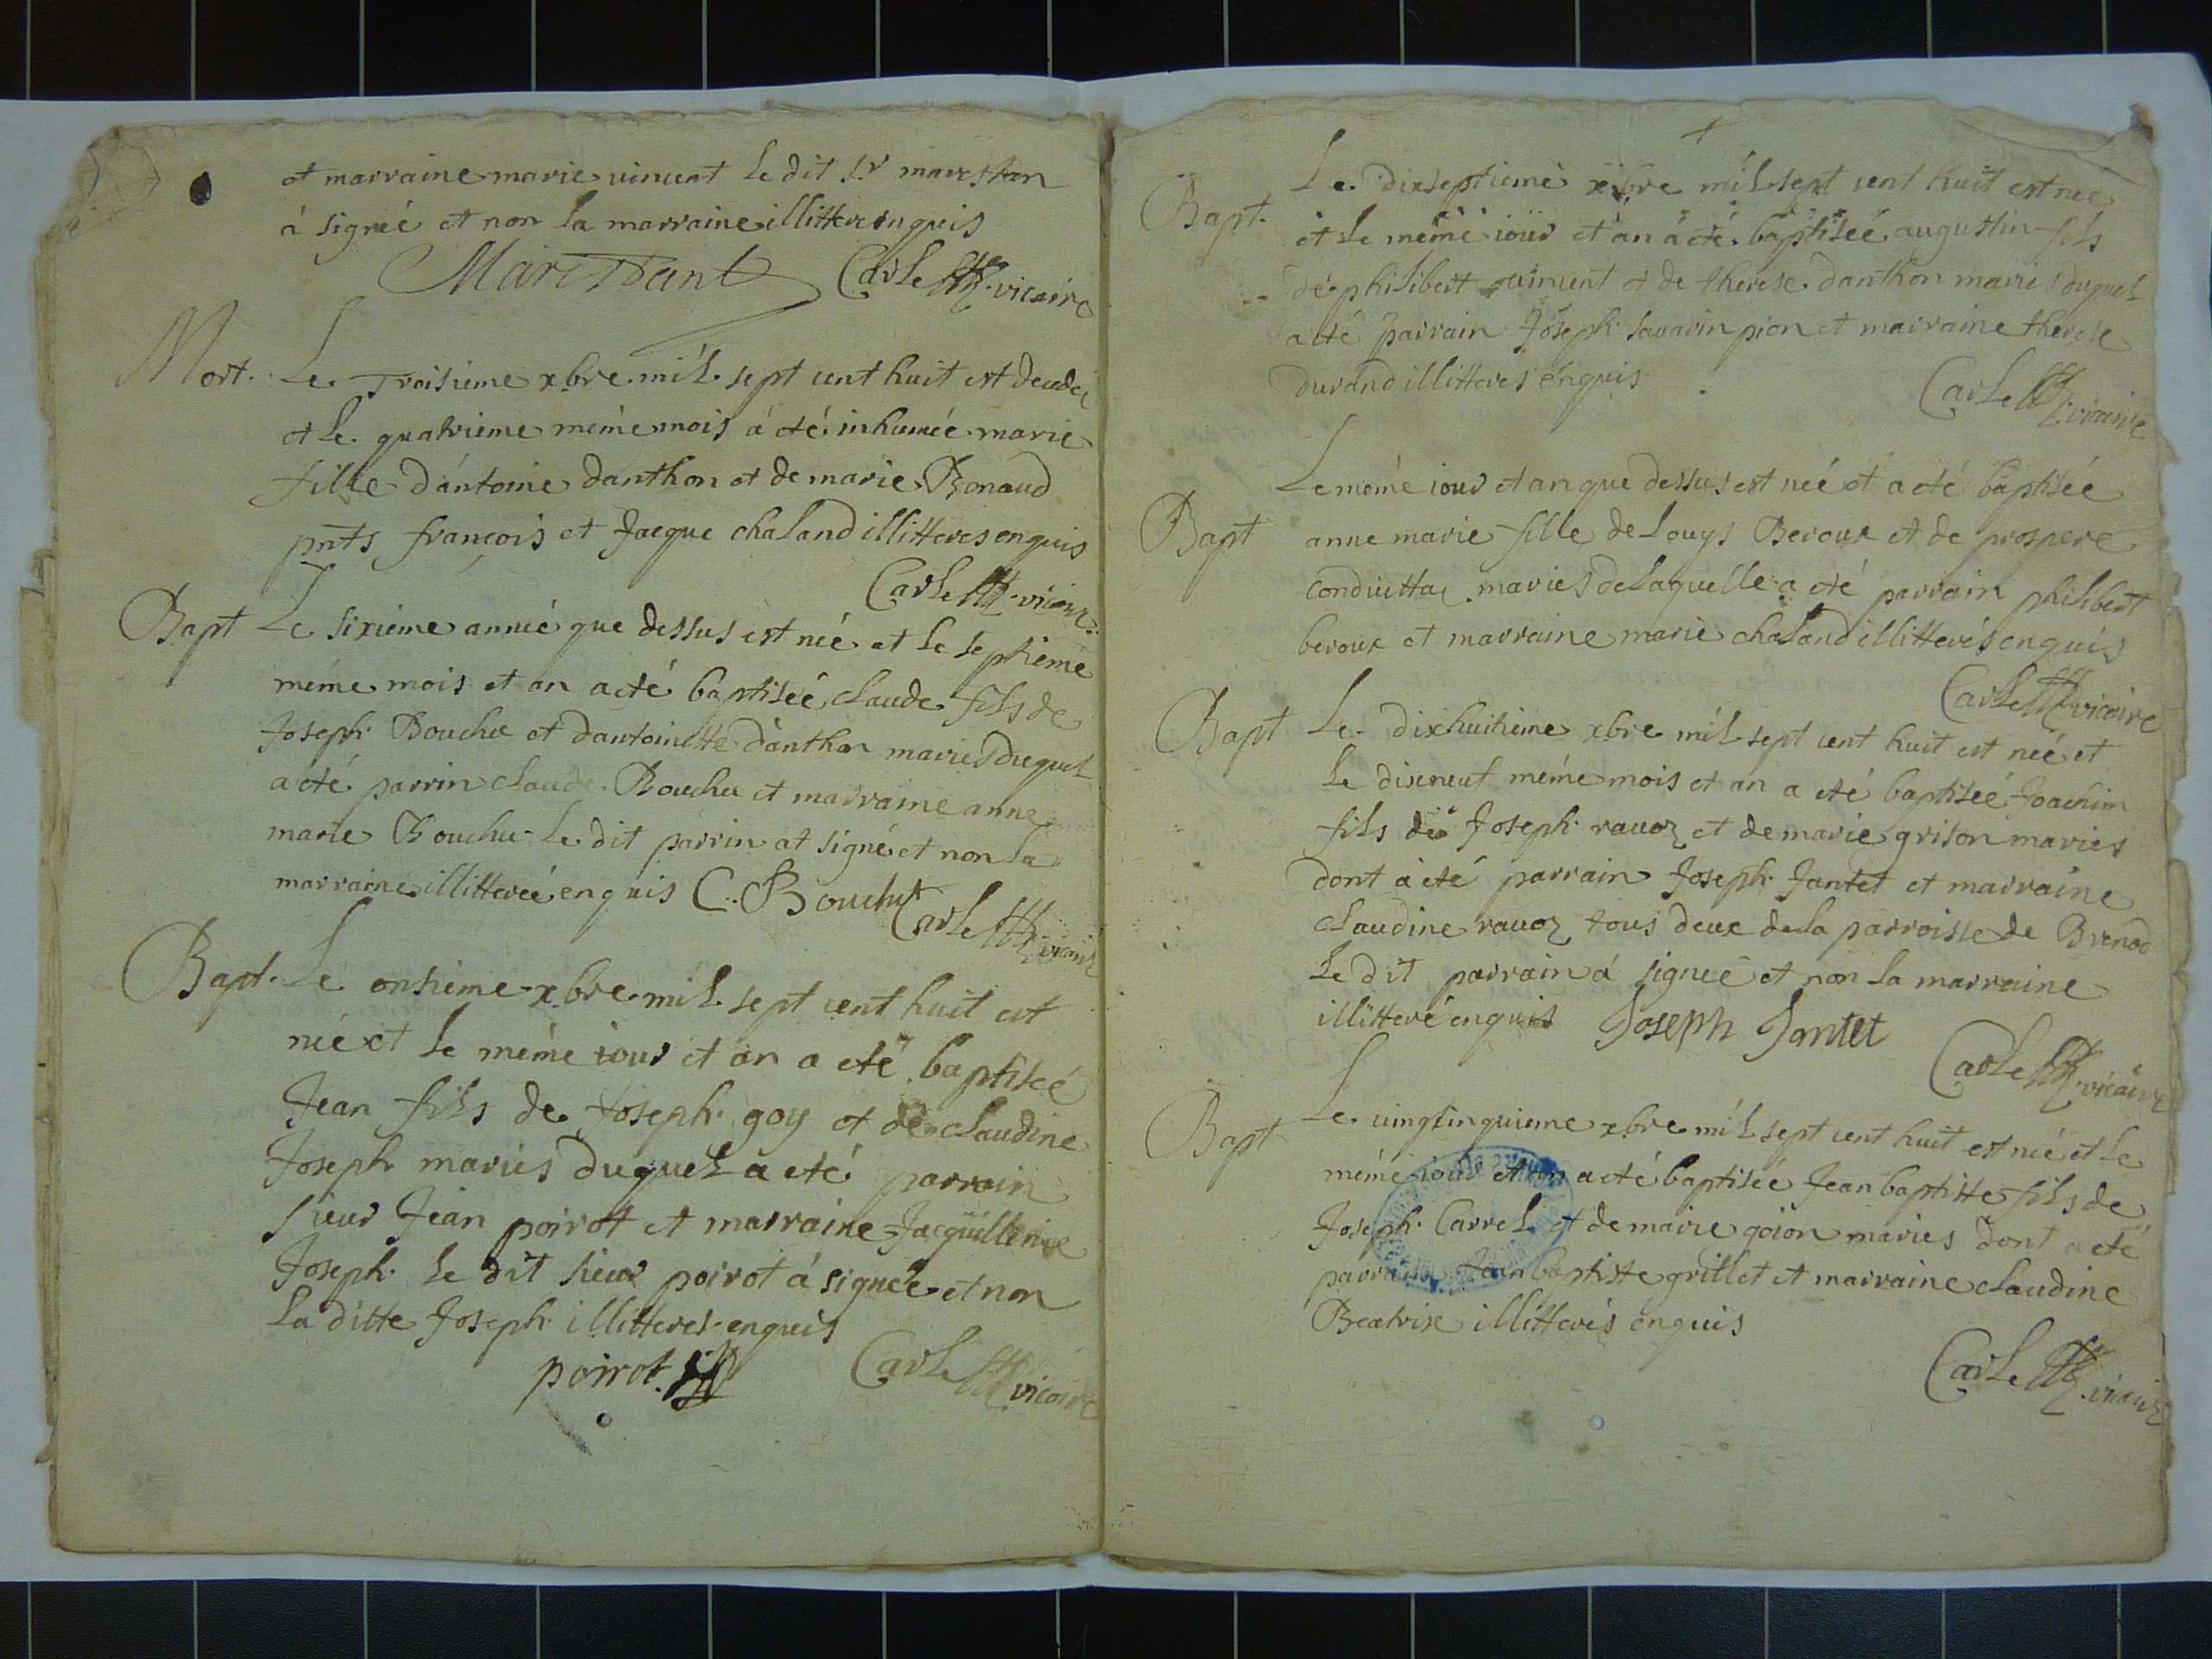 et marraine marie vincent le dit s.r marestan
à signé et non la marraine illitteré enquis
Marestant Carle vicaire
Mort. Le Troisieme xbre mil sept cent huit est decedeé
et le quatrieme méme mois à eté inhumée marie
fille d'antoine danthon et de marie Bonaud
pnts françois et Jacque chaland illitteres enquis
Carle vicaire
Bapt Le sixiéme anneé que dessus est né et le septiéme
méme mois et an a eté baptiseé claude fils de
Joseph Bouchu et dantoinette danthon mariés duquel
a eté parrin claude Bouchu et marraine anne
marie Bouchu le dit parrin at signé et non la
marraine illittereé enquis C. Bouchu Carle vicaire
Bapt. Le onsiéme xbre mil sept cent huit est
né et le méme iour et an a eté baptiseé
Jean fils de Joseph goy et de claudine
Joseph mariés duquel a eté parrain
sieur Jean poirot et marraine Jacquilleme
Joseph le dit sieur poirot à signeé et non
la ditte Joseph illitteres enquis
poirot Carle vicaire
Bapt. Le dixseptieme xbre mil sept cent huit est né
et le méme iour et an a eté baptiseé augustin fils
de philibert vincent et de therese danthon mariés duquel
a eté parrain Joseph savarin pion et marraine therese
durand illitteres enquis
Carle vicaire
Le méme iour et an que dessus est né et a eté baptiseé
Bapt anne marie fille de Louys Beroux et de prospere
conduitta mariés de laquelle a eté parrain philibert
beroux et marraine marie chaland illitterés enquis
Carle vicaire
Bapt Le dixhuitieme xbre mil sept cent huit est né et
le dixneuf méme mois et an a eté baptiseé Joachim
fils de Joseph ravoz et de marie grison mariés
dont à eté parrain Joseph Jantet et marraine
claudine ravoz tous deux de la parroisse de Brenod
le dit parrain à signeé et non la marraine
illitteré enquis Joseph Jantet
Carle vicaire
Bapt Le vingtcinquieme xbre mil sept cent huit est né et le
méme iour et an a eté baptiseé Jean baptiste fils de
Joseph Carrel et de marie goion mariés dont a eté
parrain Jean baptiste grillet et marraine claudine
Beatrix illitterés enquis
Carle vicaire